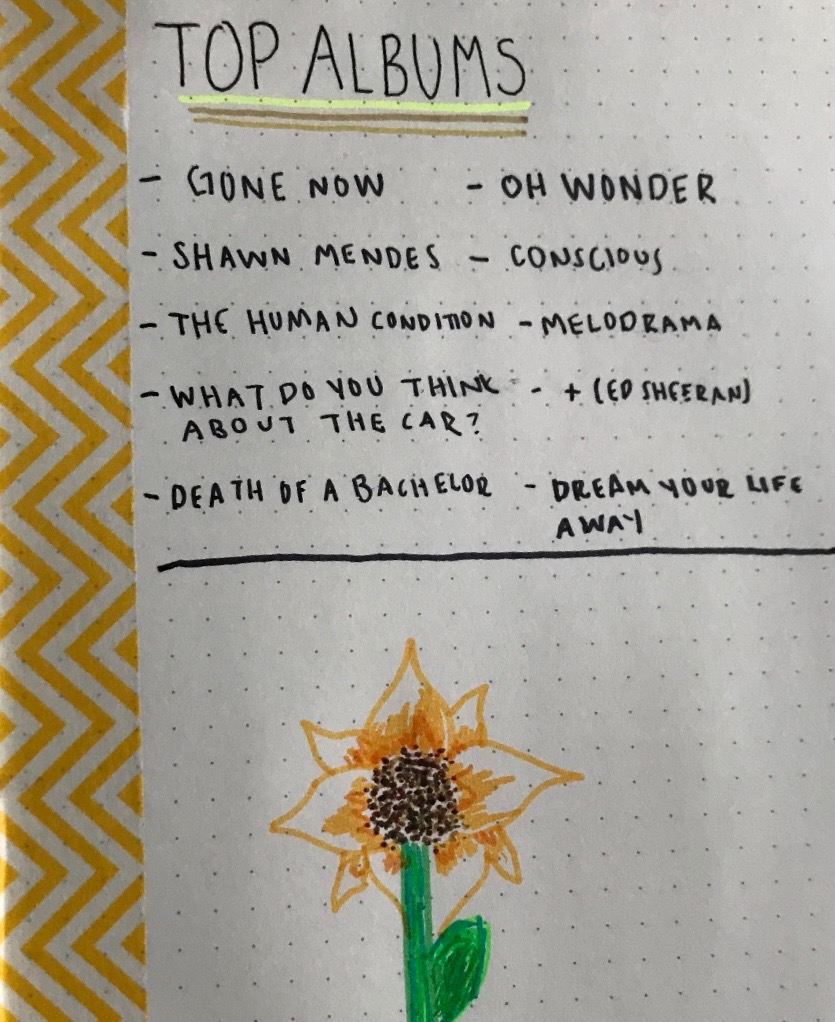 TOP ALBUMS
- GONE NOW - OH WONDER
- SHAWN MENDES - CONSCIOUS
- THE HUMAN CONDITION - MELODRAMA
- WHAT DO YOU THINK - + (ED SHEERAN)
ABOUT THE CAR?
- DEATH OF A BACHELOR - DREAM YOUR LIFE
AWAY